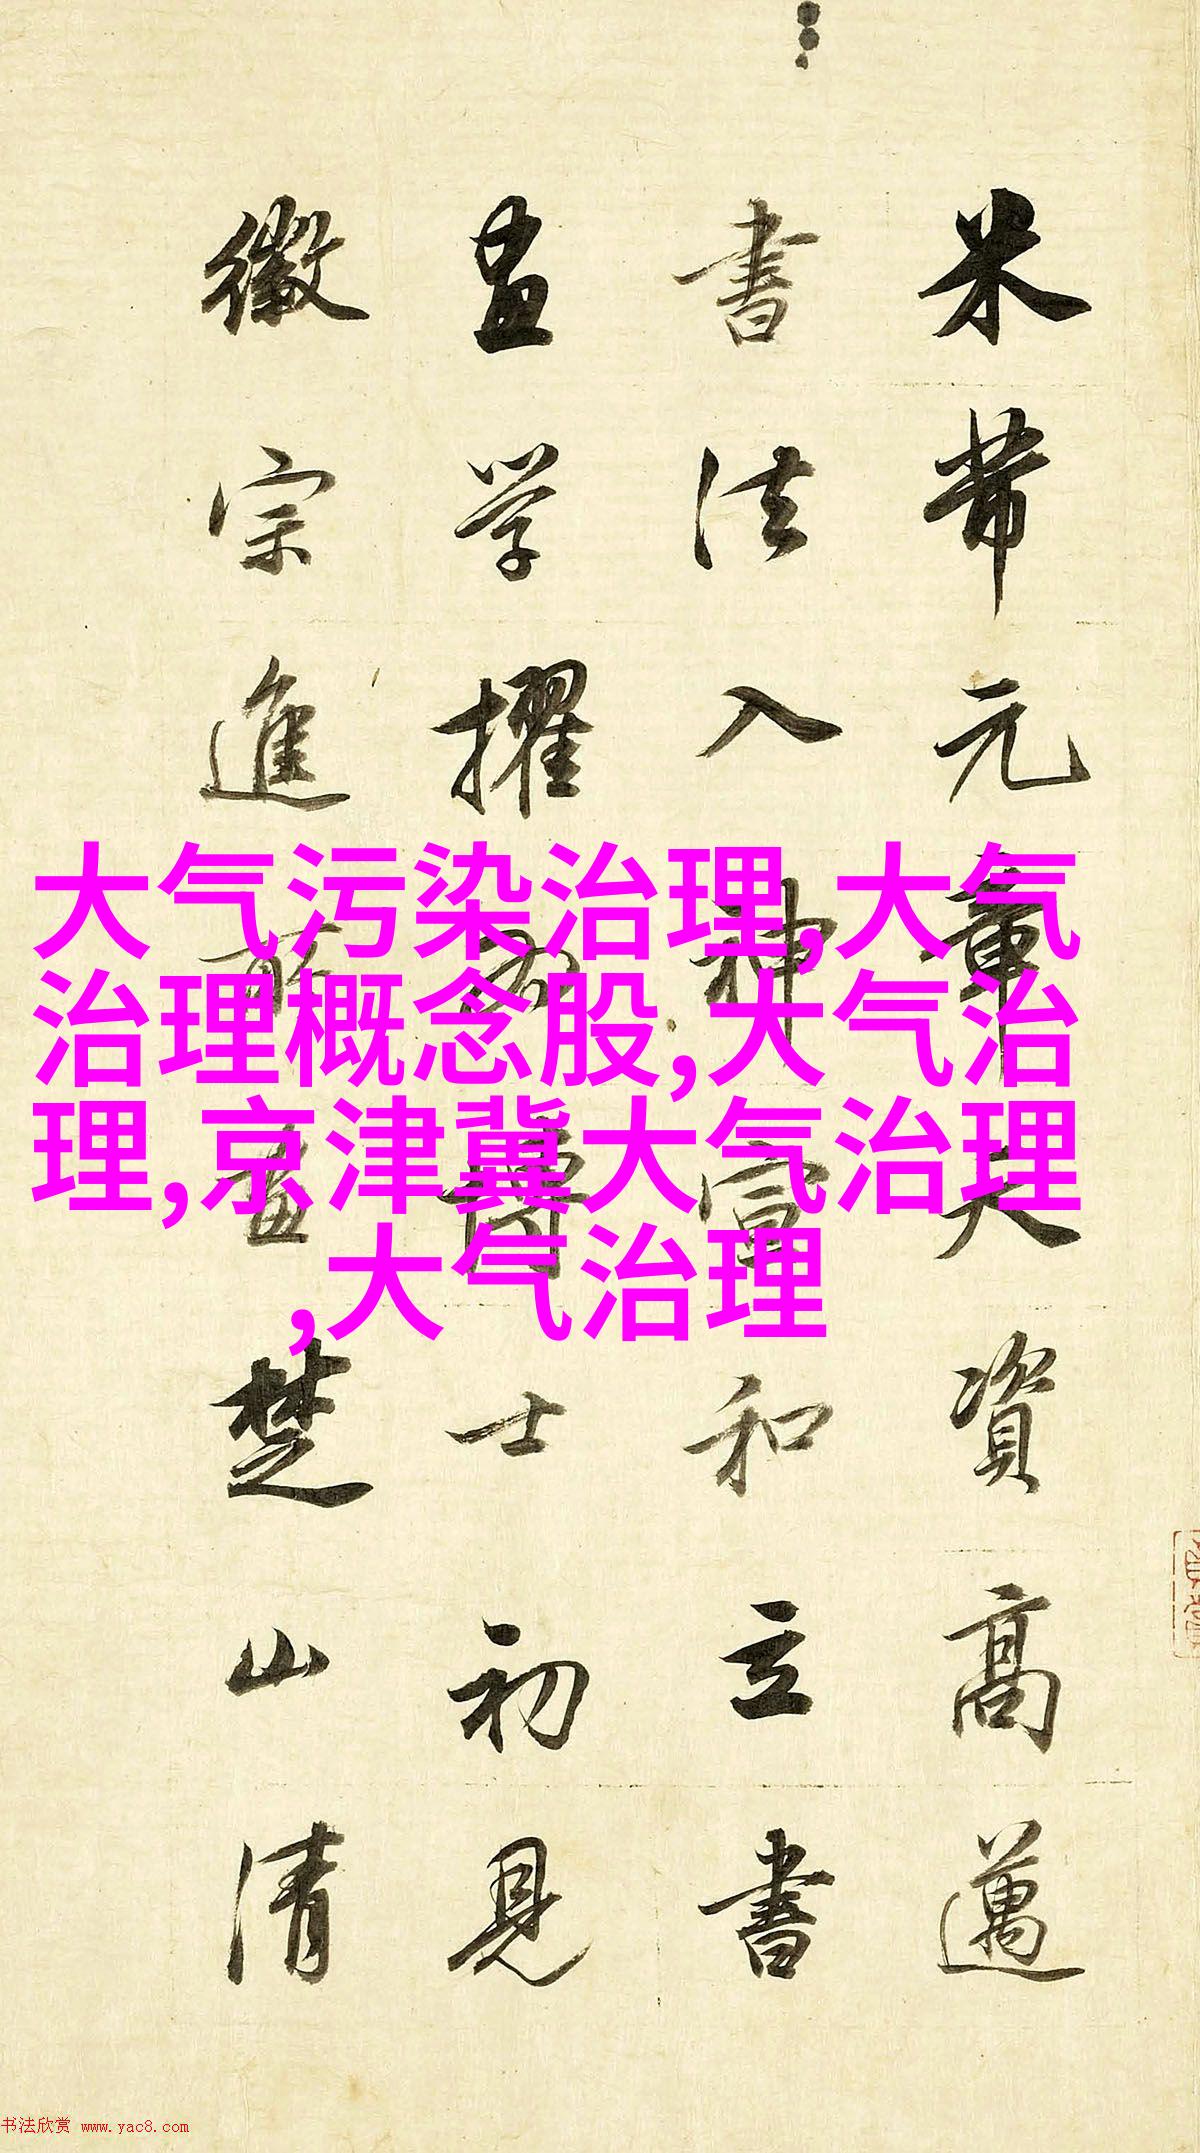 米芾元章天資高邁
書法入神宣和立書
畫学擢為博士初見
徽宗進所畫楚山清
大气污染治理,大气
治理概念股,大气治
理,京津冀大气治理
,大气治理
书法欣赏 www.yac8.com